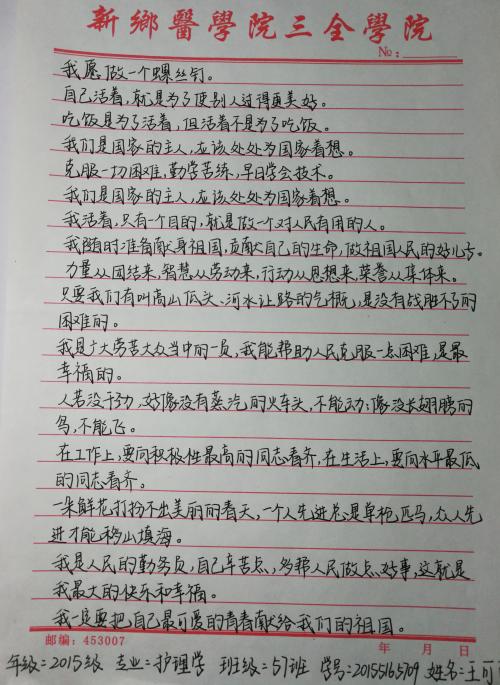 新鄉醫學院三全學院
№:
我愿做一个螺丝钉。
自己活着,就是为了使别人过得更美好。
吃饭是为了活着,但活着不是为了吃饭。
我们是国家的主人,应该处处为国家着想。
克服一切困难,勤学苦练,早日学会技术。
我们是国家的主人,应该处处为国家着想。
我活着,只有一个目的,就是做一个对人民有用的人。
我随时准备献身祖国,贡献自己的生命,做祖国人民的好儿子。
力量从团结来,智慧从劳动来,行动从思想来,荣誉从集体来。
只要我们有叫高山低头、河水让路的气概,是没有战胜不了的
困难的。
我是广大劳苦大众当中的一员,我能帮助人民克服一点困难,是最
幸福的。
人若没干劲,好像没有蒸汽的火车头,不能动;像没长翅膀的
鸟,不能飞。
在工作上,要向积极性最高的同志看齐,在生活上,要向水平最低
的同志看齐。
一朵鲜花打扮不出美丽的春天,一个人先进总是单枪匹马,众人先
进才能移山填海。
我是人民的勤务员,自己辛苦点,多帮人民做点好事,这就是
我最大的快乐和幸福。
我一定要把自己最可爱的青春献给我们的祖国。
邮编:453007 年 月 日
年级:2015级 专业:护理学 班级:57班 学号:20155165709 姓名:王可